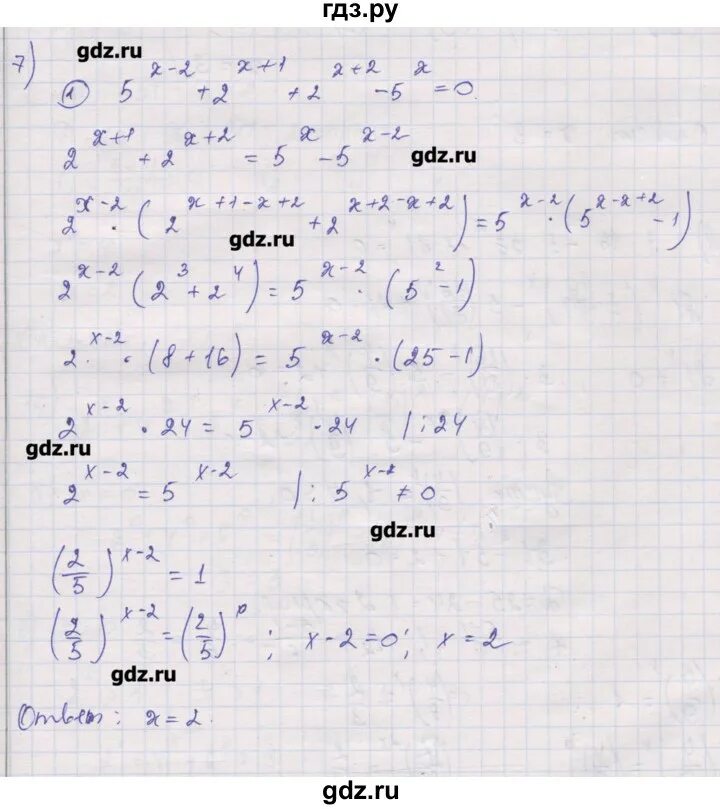 гдз.ру
7) gdz.ru
1 5^{x-2} + 2^{x+1} + 2^{x+2} - 5^{x} = 0.
2^{x+1} + 2^{x+2} = 5^{x} - 5^{x-2} gdz.ru
2^{x-2} · (2^{x+1-x+2} + 2^{x+2-x+2}) = 5^{x-2} · (5^{x-x+2} - 1)
gdz.ru
2^{x-2} (2^{3} + 2^{4}) = 5^{x-2} · (5^{2} - 1)
2^{x-2} · (8 + 16) = 5^{x-2} · (25 - 1)
2^{x-2} · 24 = 5^{x-2} · 24 | : 24
gdz.ru
2^{x-2} = 5^{x-2} | : 5^{x-2} ≠ 0
gdz.ru
(2/5)^{x-2} = 1
(2/5)^{x-2} = (2/5)^{0} ; x-2=0; x=2
gdz.ru
Ответ: x=2.
gdz.ru